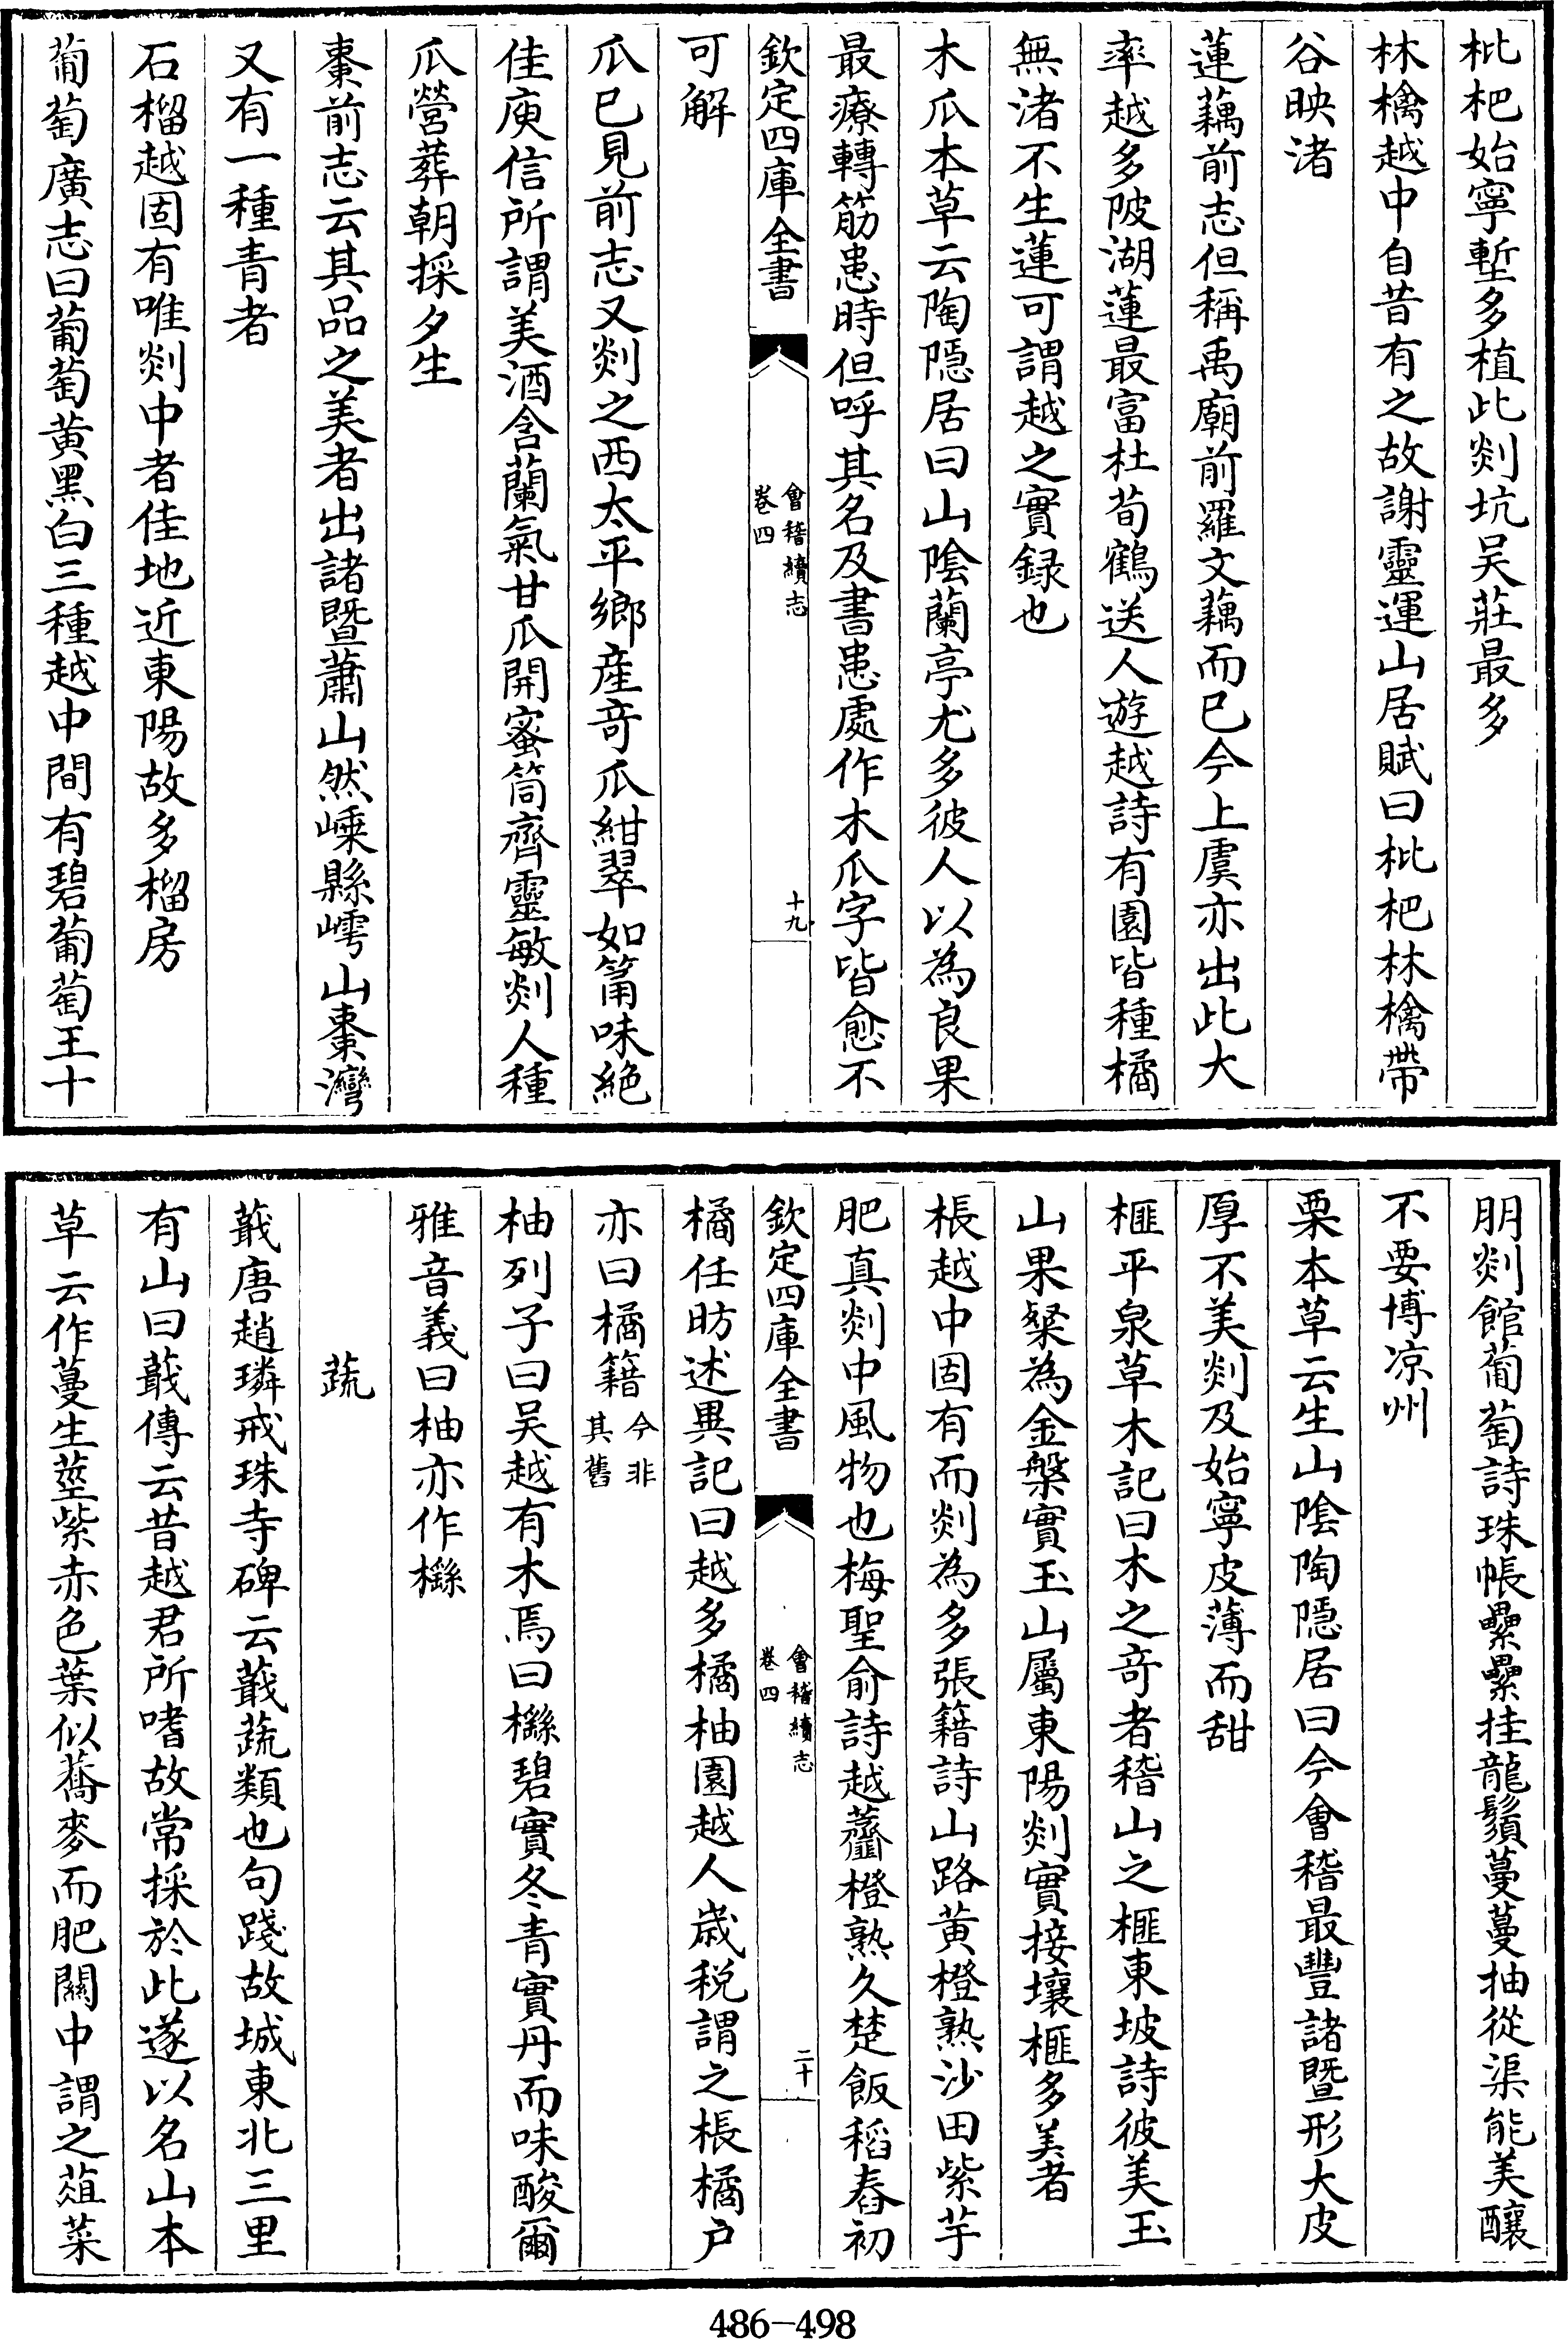 枇杷始寧墅多植此剡坑吴莊最多
林檎越中自昔有之故謝靈運山居賦曰枇杷林檎帶
谷映渚
蓮藕前志但稱禹廟前羅文藕而已今上虞亦出此大
率越多陂湖蓮最富杜荀鶴送人遊越詩有園皆種橘
無渚不生蓮可謂越之實録也
木瓜本草云陶隠居曰山陰蘭亭尤多彼人以為良果
最療轉筋患時但呼其名及書患處作木瓜字皆愈不
欽定四庫全書
會稽續志
卷四
十九
可解
瓜已見前志又剡之西太平鄉産竒瓜紺翠如筩味絶
佳庾信所謂美酒含蘭氣甘瓜開蜜筒齊靈敏剡人種
瓜營葬朝採夕生
棗前志云其品之美者出諸暨蕭山然嵊縣嶀山棗灣
又有一種青者
石榴越固有唯剡中者佳地近東陽故多榴房
葡萄廣志曰葡萄黄黑白三種越中間有碧葡萄王十
朋剡館葡萄詩珠帳纍纍挂龍鬚蔓蔓抽從渠能美釀
不要博凉州
栗本草云生山陰陶隠居曰今會稽最豐諸暨形大皮
厚不美剡及始寧皮薄而甜
榧平泉草木記曰木之竒者稽山之榧東坡詩彼美玉
山果粲為金槃實玉山屬東陽剡實接壤榧多美者
棖越中固有而剡為多張籍詩山路黄橙熟沙田紫芋
肥真剡中風物也梅聖俞詩越虀橙熟久楚飯稻舂初
欽定四庫全書
會稽續志
卷四
二十
橘任昉述異記曰越多橘柚園越人歳税謂之棖橘户
亦曰橘籍今非其舊
柚列子曰吴越有木焉曰櫾碧實冬青實丹而味酸爾
雅音義曰柚亦作櫾
蔬
蕺唐趙璘戒珠寺碑云蕺蔬類也句踐故城東北三里
有山曰蕺傳云昔越君所嗜故常採於此遂以名山本
草云作蔓生莖紫赤色葉似蕎麥而肥關中謂之葅菜
486-498